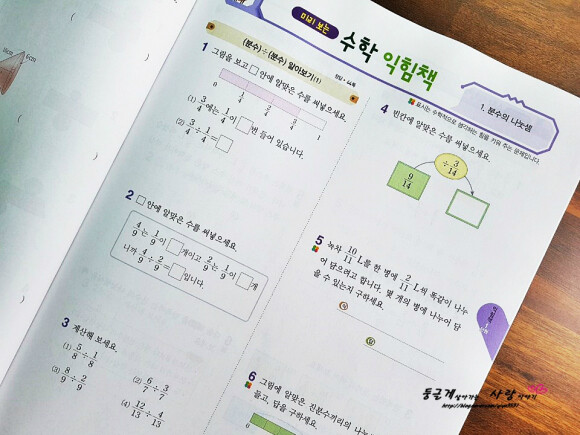 미리 보는
수학 익힘책
1. 분수의 나눗셈
(분수)÷(분수) 알아보기(1)
표시는 수학적으로 생각하는 힘을 키워 주는 문제입니다.
1 그림을 보고 □ 안에 알맞은 수를 써넣으세요.
0 1/4 2/4 3/4 1
(1) 3/4에는 1/4이 □번 들어 있습니다.
(2) 3/4÷1/4=□
2 □ 안에 알맞은 수를 써넣으세요.
4/9는 1/9이 □개이고 2/9는 1/9이 □개
니까 4/9÷2/9=□입니다.
3 계산해 보세요.
(1) 5/8÷1/8
(2) 6/7÷3/7
(3) 8/9÷2/9
(4) 12/13÷4/13
4 빈칸에 알맞은 수를 써넣으세요.
÷3/14
9/14
5 녹차 10/11 L를 한 병에 2/11 L씩 똑같이 나누
어 담으려고 합니다. 몇 개의 병에 나누어 담
을 수 있는지 구하세요.
식
답
6 그림에 알맞은 진분수끼리의 나눗
들고, 답을 구하세요.
둥글게 살아가는 사랑 이야기
8cm
6cm